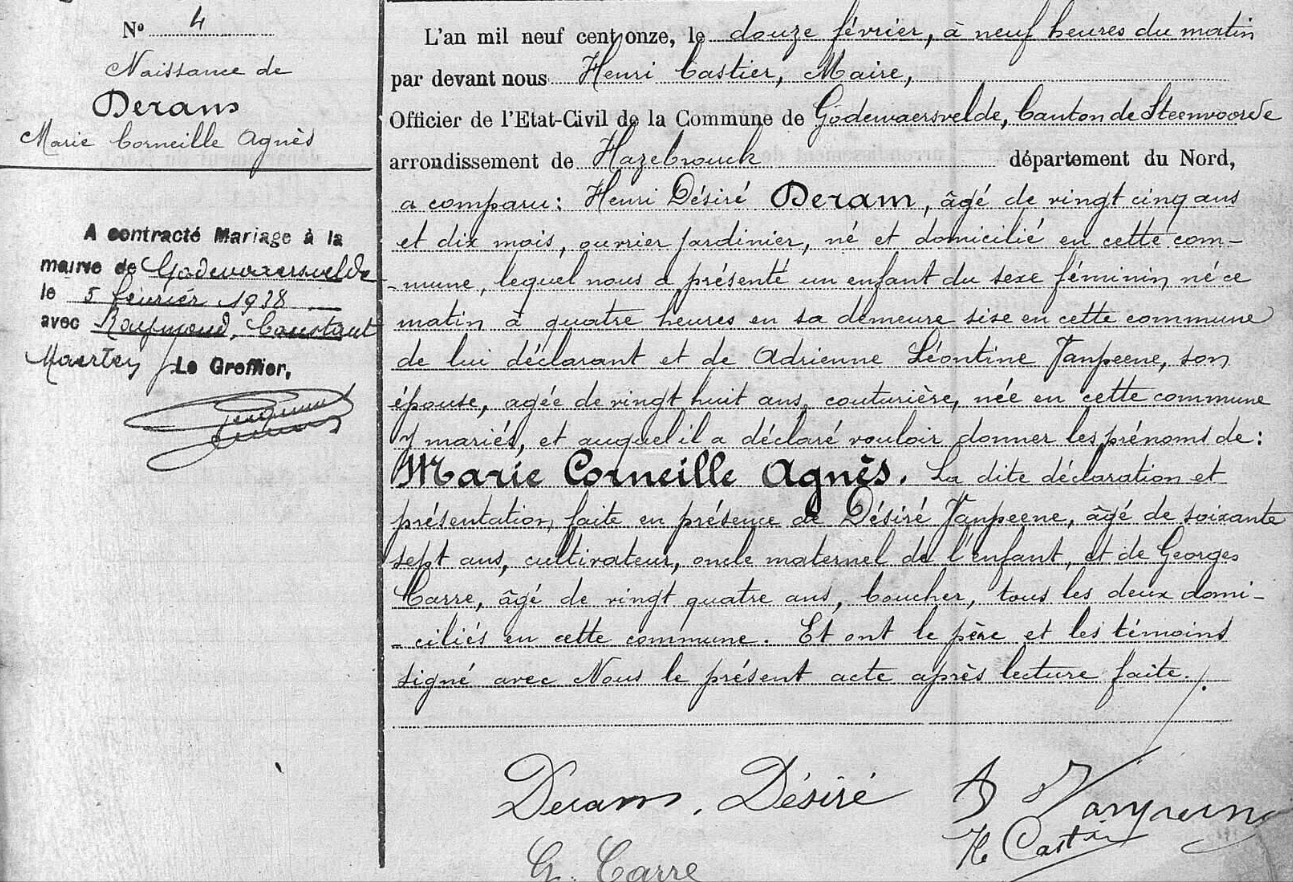 N° 4
Naissance de
Deram
Marie Corneille Agnès
A contracté Mariage à la
mairie de Godewaersvelde
le 5 février 1928
avec Raymond, Constant
Le Greffier,
L'an mil neuf cent onze, le douze février, à neuf heures du matin
par devant nous Henri Castier, Maire,
Officier de l'Etat-Civil de la Commune de Godewaersvelde, Canton de Steenvoorde
arrondissement de Hazebrouck département du Nord,
a comparu: Henri Désiré Deram, âgé de vingt cinq ans
et dix mois, ouvrier jardinier, né et domicilié en cette com-
-mune, lequel nous a présenté un enfant du sexe féminin, né ce
matin à quatre heures en sa demeure sise en cette commune
de lui déclarant et de Adrienne Léontine Vanpeene, son
épouse, agée de vingt huit ans, couturière, née en cette commune
y mariés, et auquel il a déclaré vouloir donner les prénoms de:
Marie Corneille Agnès. La dite déclaration et
présentation, faite en présence de Désiré Vanpeene, âgé de soixante
sept ans, cultivateur, oncle maternel de l'enfant, et de Georges
Carre, âgé de vingt quatre ans, boucher, tous les deux domi-
-ciliés en cette commune. Et ont le père et les témoins
signé avec Nous le présent acte après lecture faite.
Deram, Désiré
G. Carre